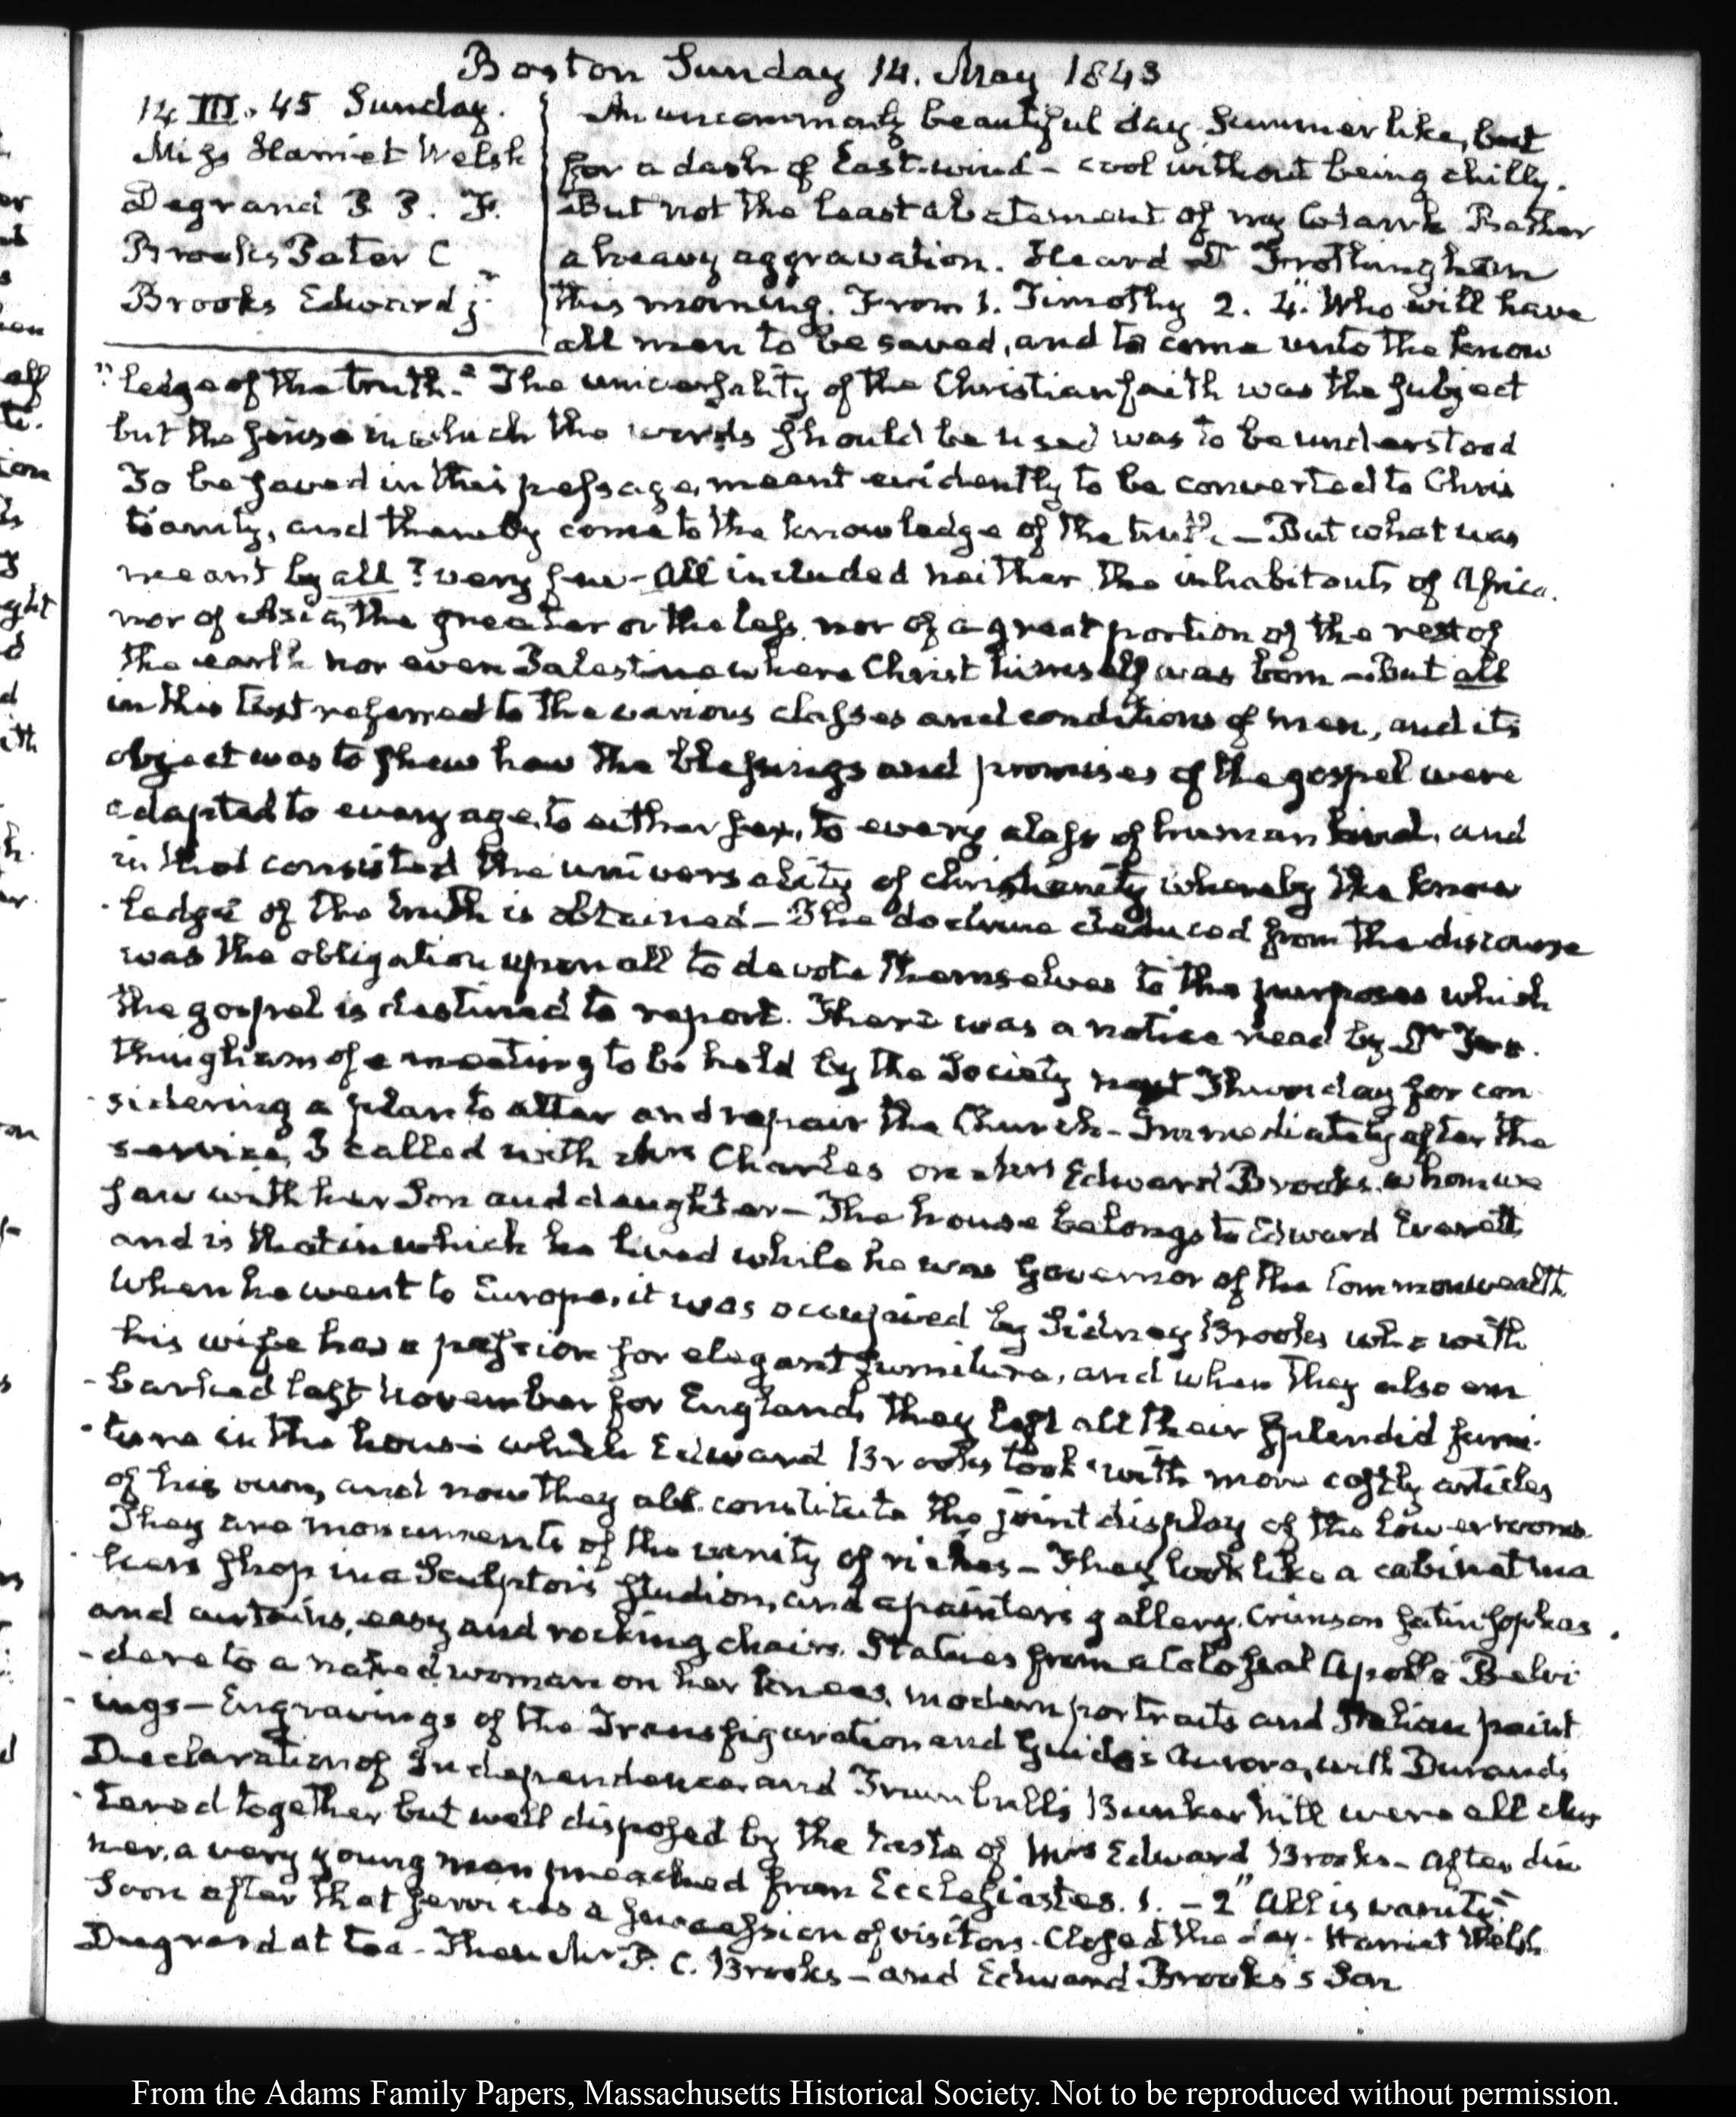 Boston Sunday 14. May 1843
14 III. 45 Sunday.
Miss Harriet Welsh
Degrand P. P. F.
Brooks Peter C
Brooks Edward jr
An uncommonly beautiful day Summer like, but
for a dash of East-wind - cool without being chilly.
But not the least abatement of my Catarrh Rather
a heavy aggravation. Heard Dr Frothingham
this morning. From 1. Timothy 2. 4. "Who will have
all men to be saved, and to come unto the know
"ledge of the truth." The universality of the Christian faith was the subject
but the sense in which the words should be used was to be understood
To be saved in this passage, meant evidently to be converted to Chris
tianity, and thereby come to the knowledge of the truth - But what was
meant by all? very few - All included neither the inhabitants of Africa.
nor of Asia, the greater or the less, nor of a great portion of the rest of
the earth nor even Palestine where Christ himself was born - But all
in this text referred to the various classes and conditions of men, and its
object was to shew how the blessings and promises of the gospel were
adapted to every age, to either sex, to every class of human kind, and
in that consisted the universality of christianity whereby the know
ledge of the truth is obtained - The doctrine deduced from the discourse
was the obligation upon all to devote themselves to the purposes which
the gospel is destined to report. There was a notice read by Dr Fro-
thingham of a meeting to be held by the Society next Thursday for con
-sidering a plan to alter and repair the Church - Immediately after the
service, I called with Mrs Charles on Mrs Edward Brooks, whom we
saw with her Son and daughter - The house belongs to Edward Everett
and is that in which he lived while he was Governor of the Commonwealth
When he went to Europe, it was occupied by Sidney Brooks who with
his wife has a passion for elegant furniture, and when they also em
-barked last November for England, they left all their splendid furni-
-ture in the house which Edward Brooks took with more costly articles
of his own, and now they all constitute the joint display of the lower rooms
They are monuments of the vanity of riches - They look like a cabinet ma
kers shop in a Sculptor's studion, and a painter's gallery. Crimson satin sophas
and curtains, easy and rocking chairs. Statues from a Colossal Apollo Belvi
-dere to a naked woman on her knees, modern portraits and Italian paint
-ings - Engravings of the Transfiguration and Guido's Aurora, with Durand's
Declaration of Independence and Trumbull's Bunker hill were all clus
-tered together but well disposed by the taste of Mrs Edward Brooks - After din
ner, a very young man preached from Ecclesiastes. 1. - 2 "All is vanity"
Soon after that service a succession of visitors. Closed the day - Harriet Welsh
Degrand at tea - Then Mr P. C. Brooks - and Edward Brooks's Son
From the Adams Family Papers, Massachusetts Historical Society. Not to be reproduced without permission.